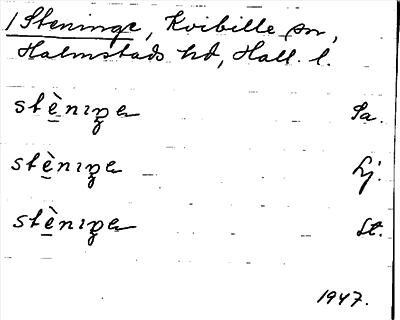 1 Steninge, Kvibille sn,
Halmstads hd, Hall. l.
stèniŋɐ Sa.
stèniŋɐ Lj.
stèniŋɐ St.
1947.